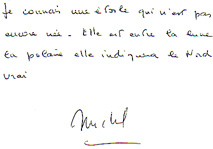 Je connais une étoile qui n'est pas
encore née. Elle est entre la lune
la polaire elle indiquera le Nord
vrai
Michel